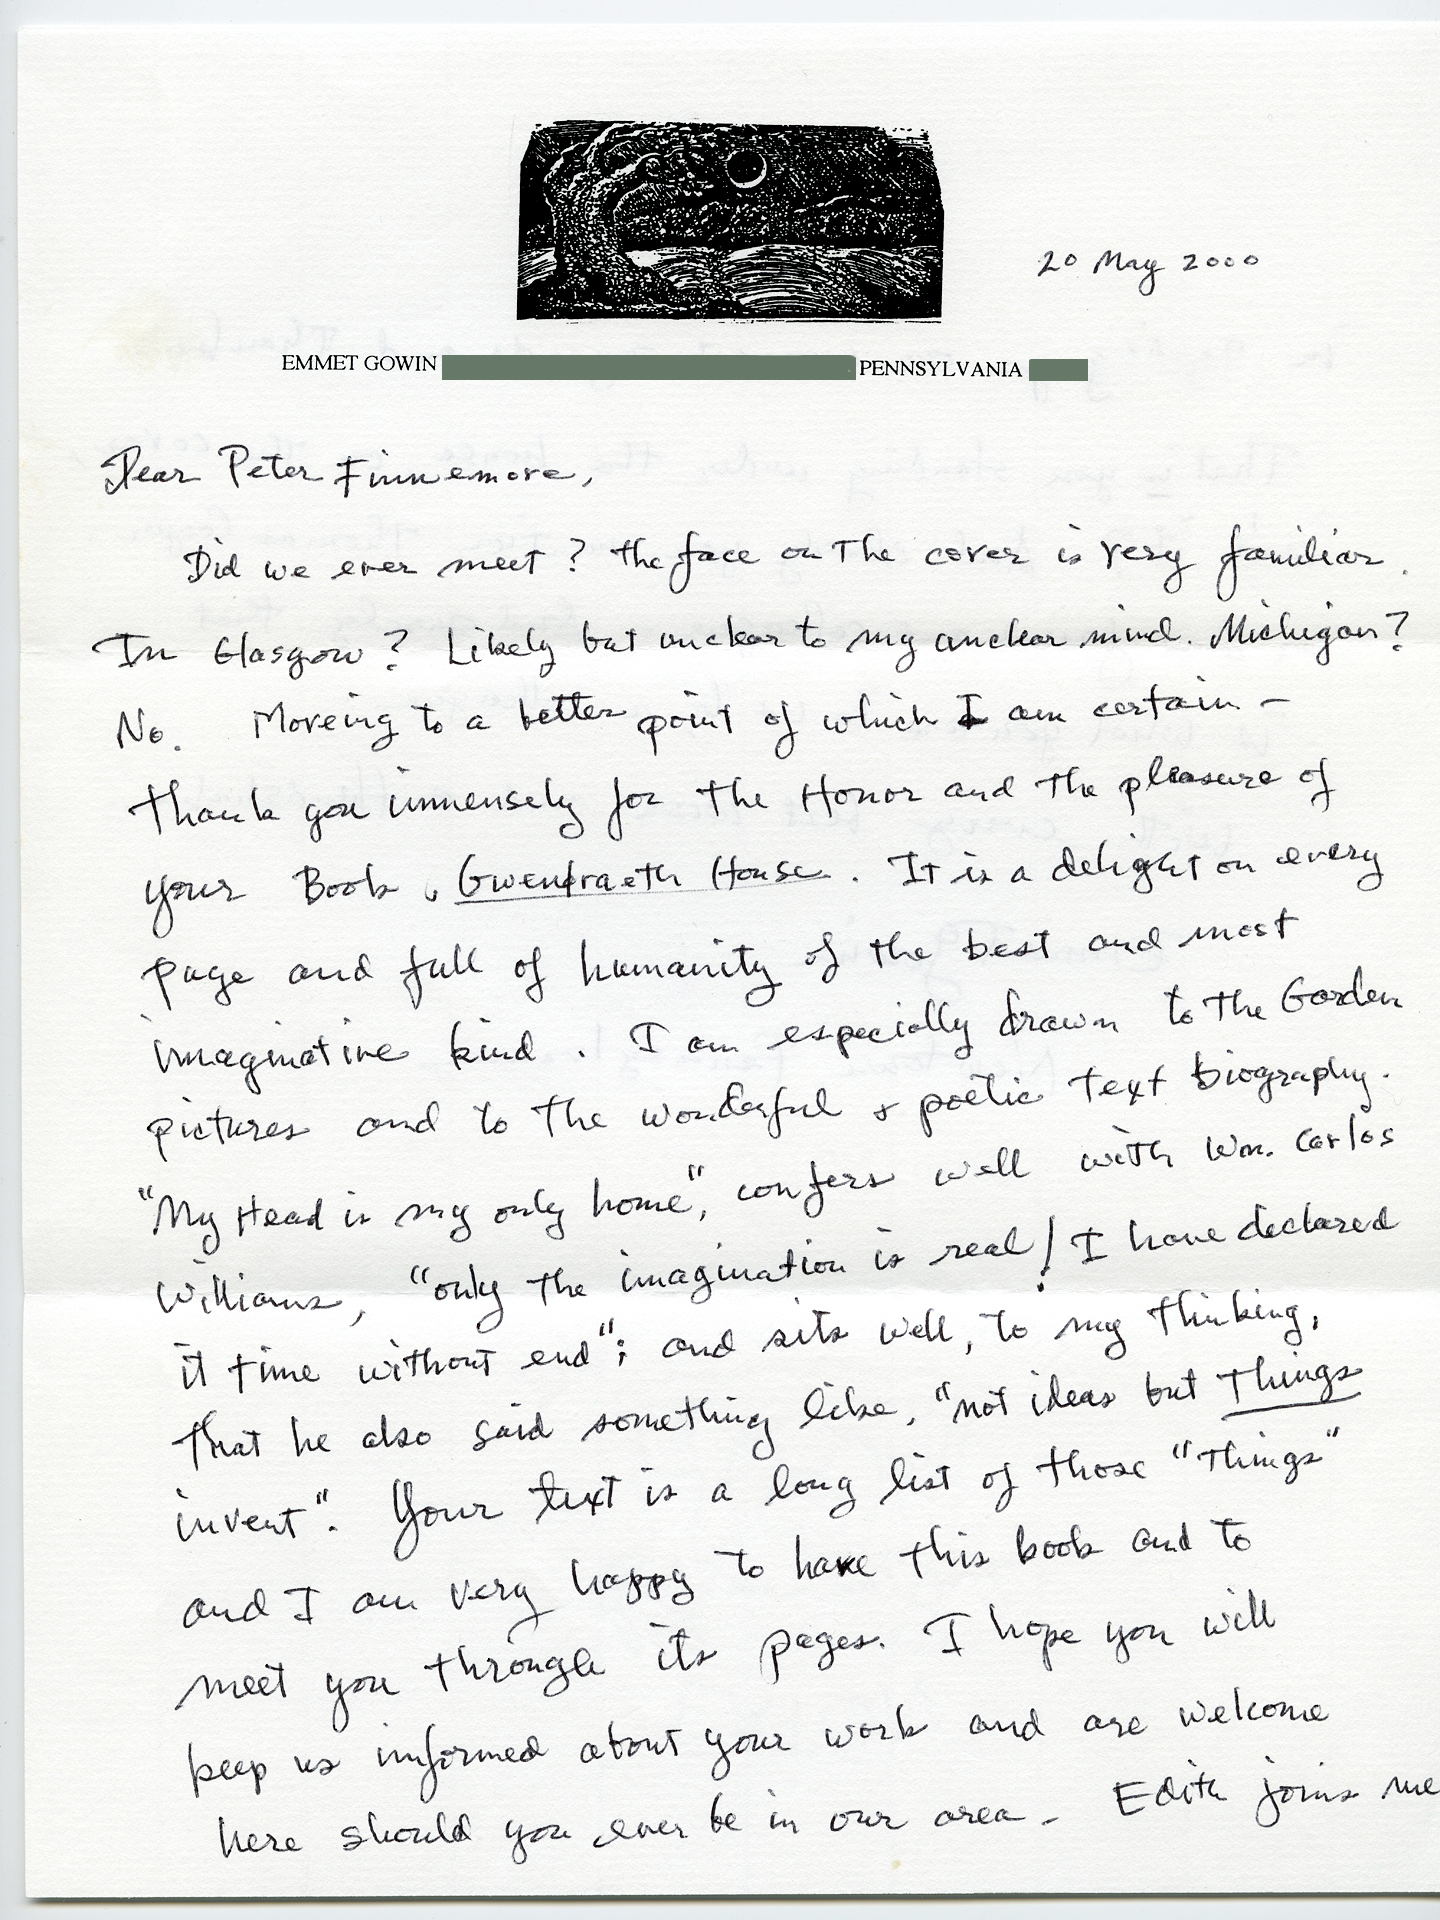 20 May 2000
EMMET GOWIN PENNSYLVANIA
Dear Peter Finnemore,
Did we ever meet? the face on The cover is very familiar.
In Glasgow? Likely but unclear to my unclear mind. Michigan?
No. Moveing to a better point of which I am certain –
thank you immensely for the Honor and the pleasure of
your Book, Gwendraeth House. It is a delight on every
page and full of humanity of the best and most
imaginative kind. I am especially drawn to the Garden
pictures and to the wonderful & poetic text biography.
"My Head is my only home", confers well with Wm. Carlos
Williams, "only the imagination is real! I have declared
it time without end"; and sits well, to my thinking,
that he also said something like, "not ideas but Things
invent". Your text is a long list of those "Things"
and I am very happy to have this book and to
meet you through its pages. I hope you will
keep us informed about your work and are welcome
here should you ever be in our area. Edith joins me